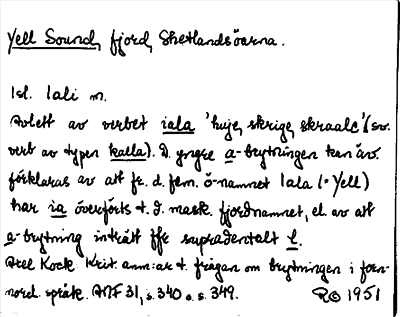 Yell Sound, fjord, Shetlandsöarna.
Isl. Iali m.
Avlett av verbet iala 'huje, skrige, skraale' (sv.
verb av typen kalla). D. yngre a-brytningen kan äv.
förklaras av att fr. d. fem. ö-namnet Iala (= Yell)
har ia överförts t. d. mask. fjordnamnet, el. av att
a-brytning inträtt ffr supradentalt l.
Axel Kock. Krit. anm:ar t. frågan om brytningen i forn-
nord. språk. ANF 31, s. 340 o. s. 349.
1951